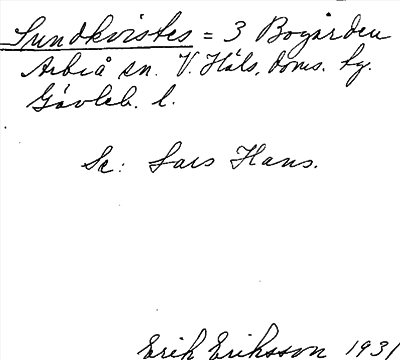 Sundkvistes = 3 Bogården
Arbrå sn. V. Häls. doms. hg.
Gävleb. l.
Se: Lars Hans.
Erik Eriksson 1931